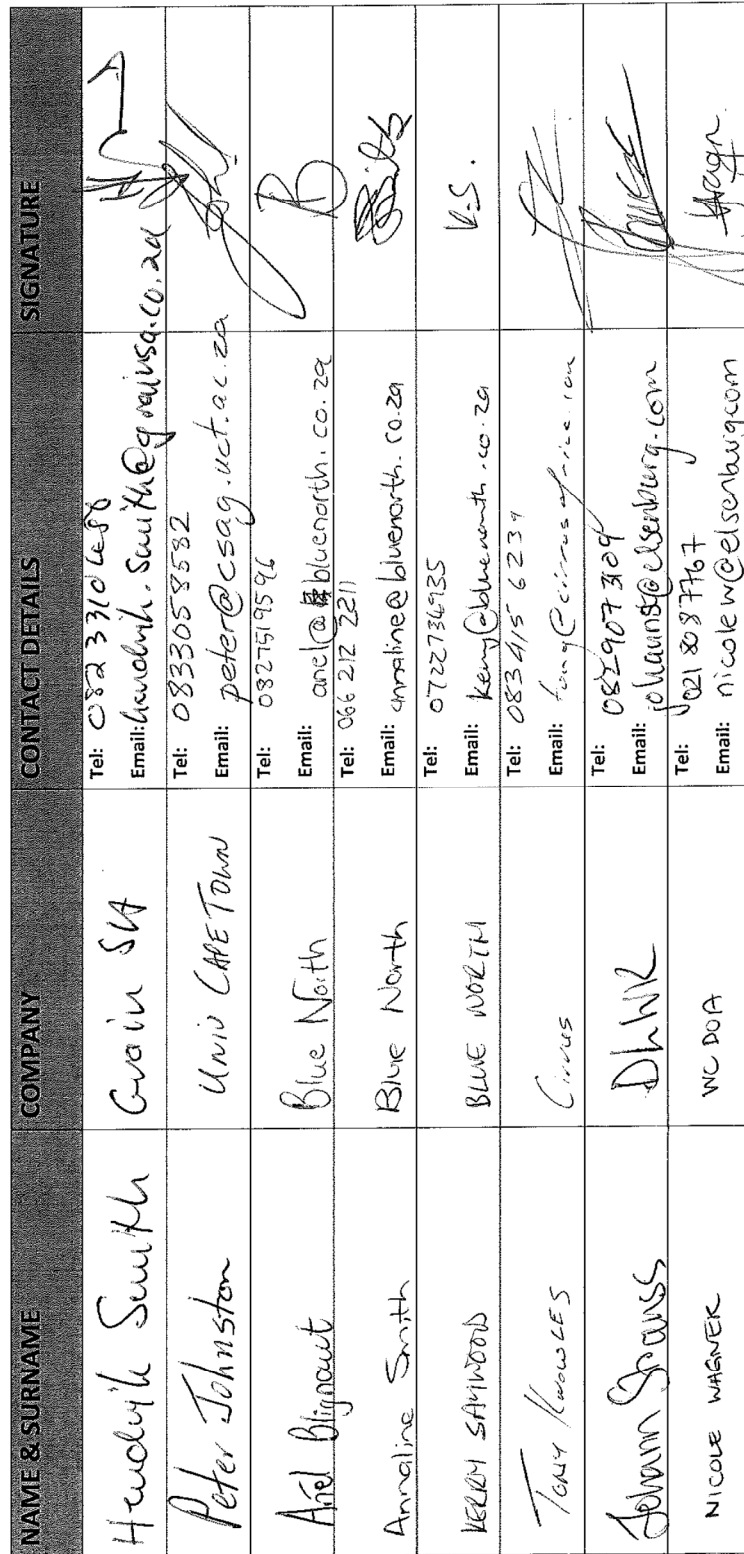 NAME & SURNAME COMPANY CONTACT DETAILS SIGNATURE
Hendrik Smith Grain SA Tel: 082 331
Email: hendrik.smith@grainsa.co.za
Peter Johnston UNIV CAPE TOWN Tel: 0833058582
Email: peter@csag.uct.ac.za
Anel Blignaut Blue North Tel: 0827519596
Email: anel@bluenorth.co.za
Annaline Smith Blue North Tel: 066 212 2211
Email: annaline@bluenorth.co.za
KERRY SAYWOOD BLUE NORTH Tel: 0722736935
Email: kerry@bluenorth.co.za K.S.
TONY KNOWLES Cirrus Tel: 083 415 6239
Email: tony@cirrusafrica.com
Johann Strauss DLWK Tel: 0829073109
Email: johanns@elsenburg.com
NICOLE WAGNER WC DOA Tel: 021 8087767
Email: nicolew@elsenburg.com